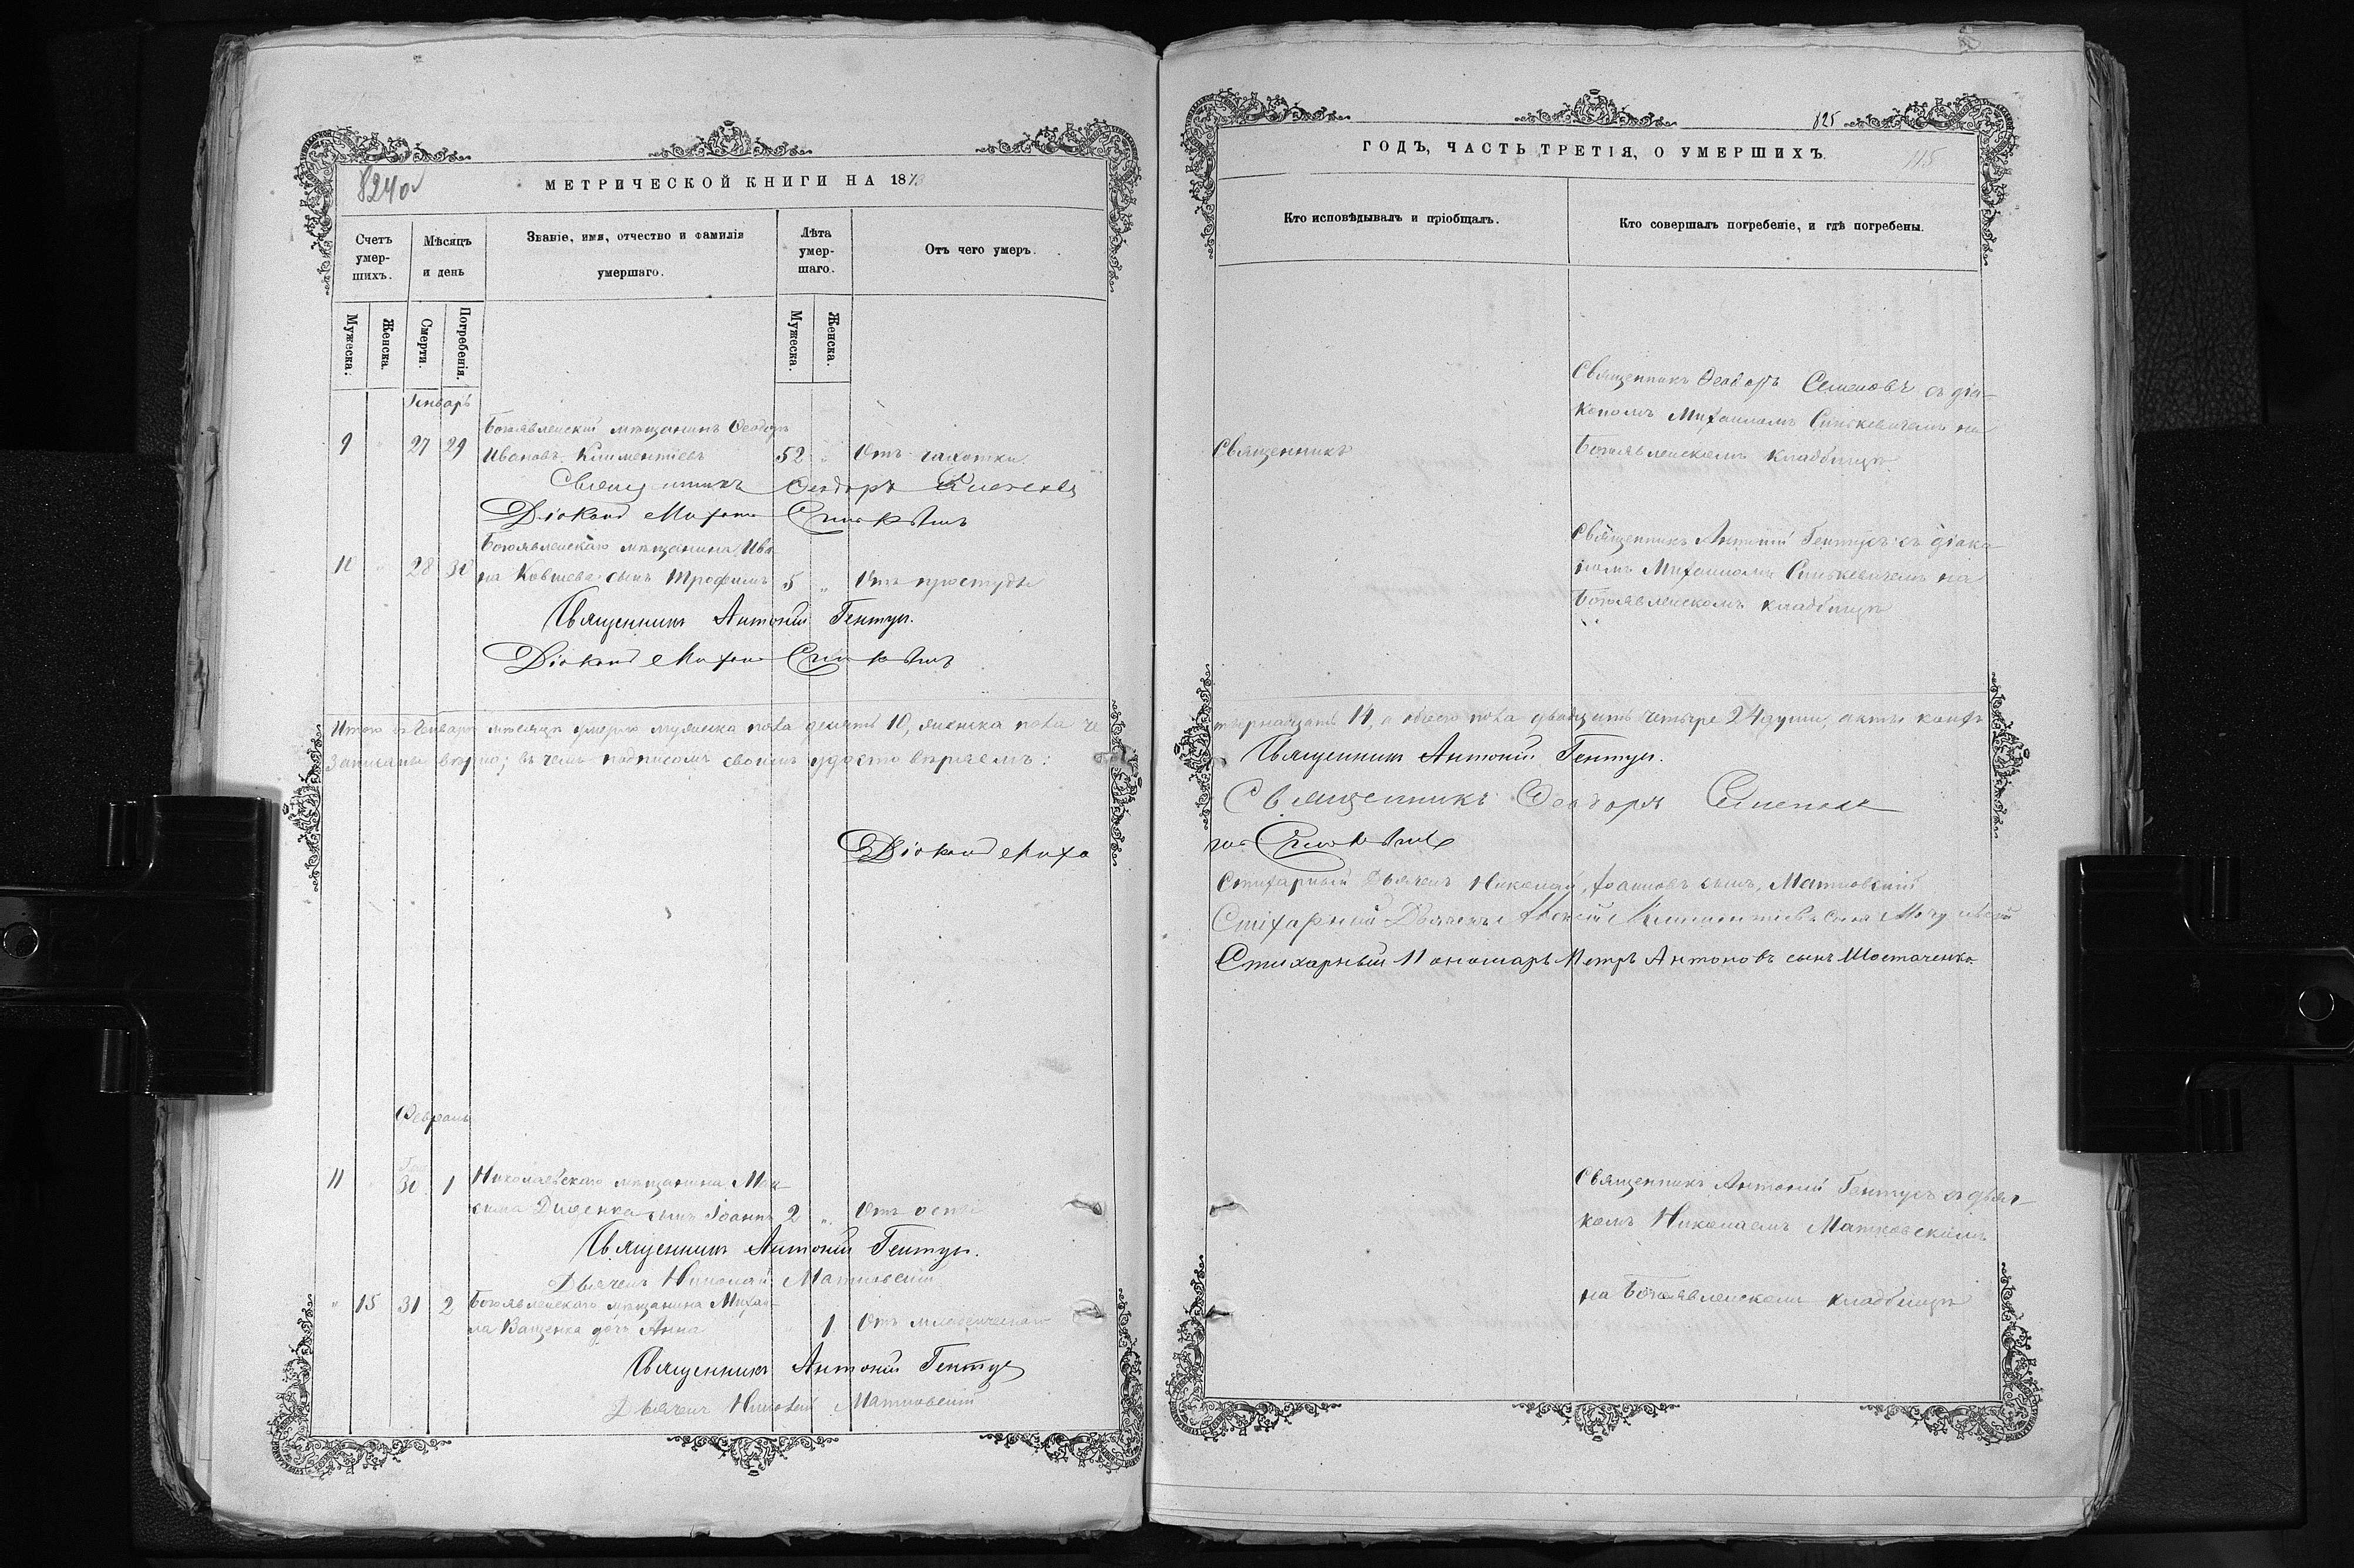 824об
МЕТРИЧЕСКОЙ КНИГИ НА 187
Счетъ умер-шихъ.
Мѣсяцъ и день
Званіе, имя, отчество и фамилія умершаго.
Лѣта умер-шаго.
Отъ чего умеръ.
Мужеска.
Женска.
Смерти.
Погребенія.
Мужеска.
Женска.
Генварь
Богоявленскій мѣщанинъ Ѳеодоръ
9 " 27 29 Ивановъ Климентіевъ 52 " Отъ чахотки
Священникъ Ѳеодоръ Семеновъ
Діаконъ Михаилъ Синькевичъ
Богоявленскаго мѣщанина Ива
10 " 28 30 на Ковшева сынъ Трофимъ 5 " Отъ простуды
Священникъ Антоній Гентуш.
Діаконъ Михаилъ Синькевичъ
Итого въ Генварѣ мѣсяцѣ умерло мужеска пола десять 10, женска пола че
записаны вѣрно; въ чемъ подписомъ своимъ удостовѣряемъ:
Діаконъ Миха
Февраль
11 " 30 1 Николаевскаго мѣщанина Мак-
сима Диденка сынъ Іоаннъ 2 " Отъ оспы
Священникъ Антоній Гентуш.
Дьячекъ Николай Матковскій
" 15 31 2 Богоявленскаго мѣщанина Михаи-
ла Ващенка дочь Анна " 1 Отъ младенческаго
Священникъ Антоній Гентуш
Дьячекъ Николай Матковскій
825
115
ГОДЪ, ЧАСТЬ ТРЕТІЯ, О УМЕРШИХЪ.
Кто исповѣдывалъ и пріобщалъ.
Кто совершалъ погребеніе, и гдѣ погребены.
Священникъ
Священникъ Ѳеодоръ Семеновъ съ діа-
кономъ Михаиломъ Синькевичемъ на
Богоявленскомъ кладбищѣ
Священникъ Антоній Гентушъ съ діако
номъ Михаиломъ Синькевичемъ на
Богоявленскомъ кладбищѣ
тырнадцать 14, а обоего пола двадцать четыре 24 души, акты коихъ
Священникъ Антоній Гентуш.
Священникъ Ѳеодоръ Семеновъ
илъ Синькевичъ
Стихарный Дьячекъ Николай, Іоанновъ сынъ, Матковскій
Стихарный Дьячекъ Алексій Климентіевъ сынъ
Стихарный Пономарь Петръ Антоновъ сынъ Шостаченко
Священникъ Антоній Гентушъ съ дьяч-
комъ Николаемъ Матковскимъ
на Богоявленскомъ кладбищѣ